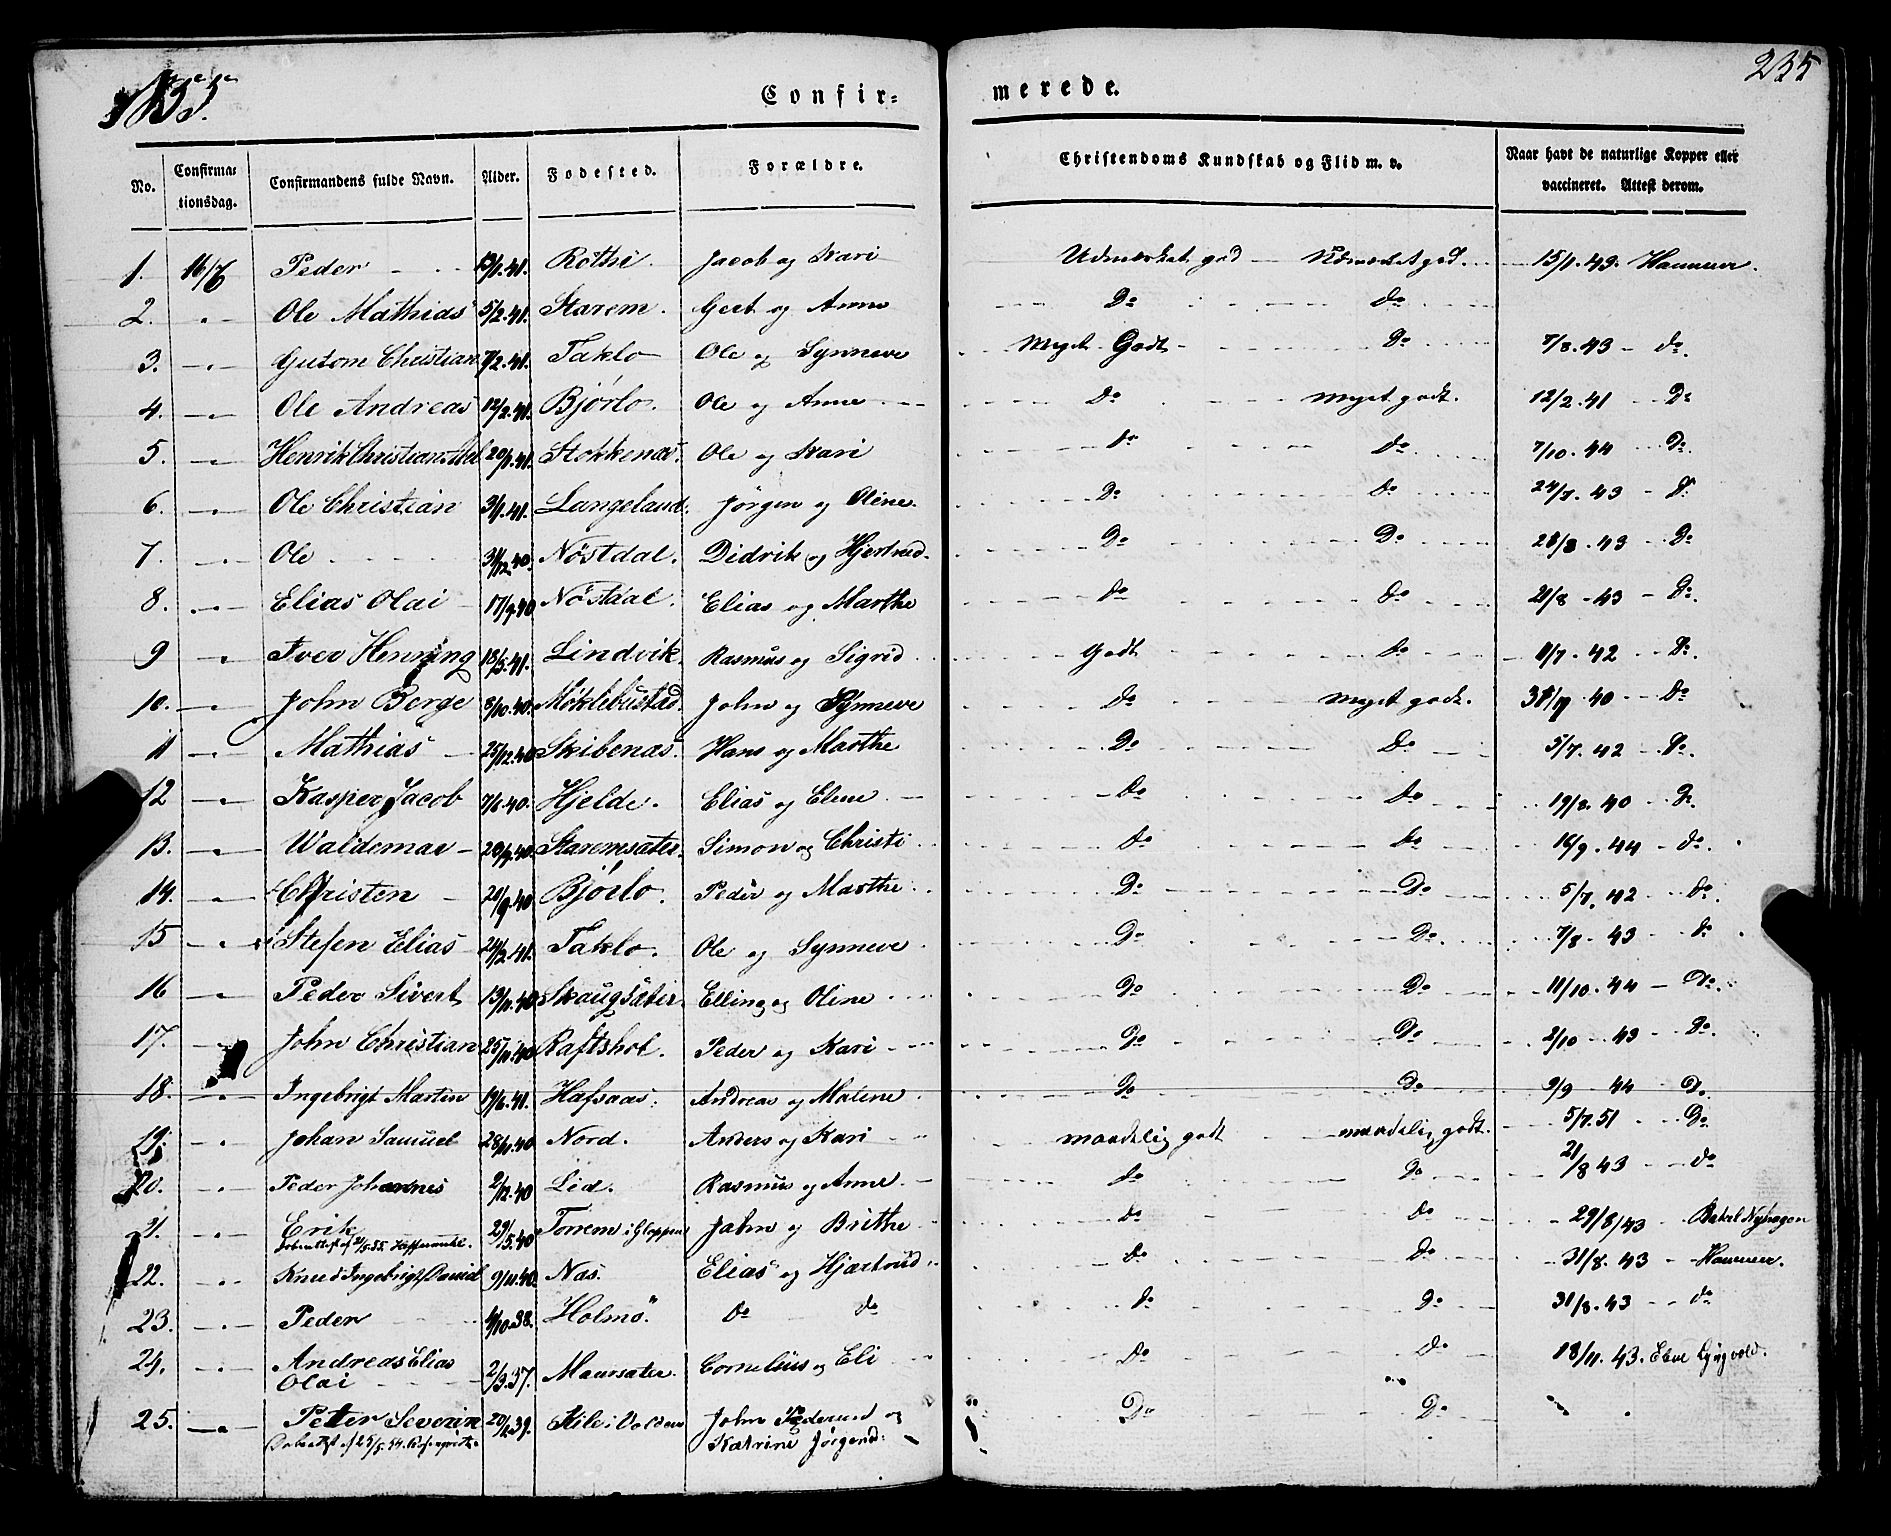 1855.
Confir-
merede.
235
No.
Confirma-
tionsdag.
Confirmandens fulde Navn.
Alder.
Fødested.
Forældre.
Christendoms Kundskab og Flid m. v.
Naar havt de naturlige Kopper eller
vaccineret. Attest derom.
1. 16/6 Peder 41. Rothi. Jacob og Kari Udmærket god Udmærket god. 15/1.43. Hammer.
2. " Ole Mathias 5/2.41. Starem. Gert og Anne Do do
3. " Gutorm Christian 7/2.41. Taklo Ole og Synneve Meget Godt Do 7/8.43 do.
4. " Ole Andreas 12/2.41. Bjørlo. Ole og Anne Do meget godt. 12/2.41 Do
5. " Henrik Christian 41. Stokkenæs. Ole og Kari do do 7/10.44 Do
6. " Ole Christian 3/1.41. Langeland. Jørgen og Oline. Do do 24/7.43 Do
7. " Ole 31/12.40. Nøstdal. Didrik og Hjertrud. Do Do 28/8.43 Do
8. " Elias Olai 40 Nøstdal. Elias og Marthe do do 21/8.43 Do
9 " Iver Henning 18/5.41. Lindvik. Rasmus og Sigrid Godt do 11/7.42 Do
10. " John Berge 8/10.40. Møklebustad. John og Synneve do meget godt. 40 Do
11 " Mathias 25/12.40 Skibenæs. Hans og Marthe Do Do 5/7.42 Do
12 " Kasper Jacob 40. Hjelde. Elias og Elene do do 19/8.40 Do
13. " Waldemar 40. Staremsæter. Simon og Christi do do 16/9.44 do.
14. " Christen 20/9.40 Bjørlo. Peder og Marthe Do Do 5/7.42 do
15 " Stefen Elias 24/2.41. Taklo. Ole og Synneve Do Do 7/8.43 do
16 " Peder Sivert 13/11.40 Skaugsæter. Elling og Oline Do Do 11/10.44 Do.
17. " John Christian 25/11.40 Raftshol. Peder og Kari Do Do 2/10.43 Do
18. " Ingebrigt Martin 19/6.41. Hafsaas. Andreas og Malene Do Do 9/9 44 Do.
19. " Johan Samuel 28/11.40 Nord. Anders og Kari maadelig godt maadelig godt. 5/7.51 Do
20. " Peder Johannes 2/12.40 Lid. Rasmus og Anne do Do 21/8 43 do
21. " Erik 29/5.40 Torrem i Gloppen John og Brithe do do 29/8/43 Nyhagen
22. " Knud Ingebrigt Daniel 9/11.40. Næs. Elias og Hjertrud do do 31/8.43 Hammer.
23. " Peder 38. Holmø. Do do do Do 31/8.43 do
24. " Andreas Elias
Olai 2/3.37. Maursæter. Cornelius og Eli Do do 18/11.43.
25. " Petter Severin 39. Kile i Volden John Pedersen og
Katrine Jørgensd: Do Do